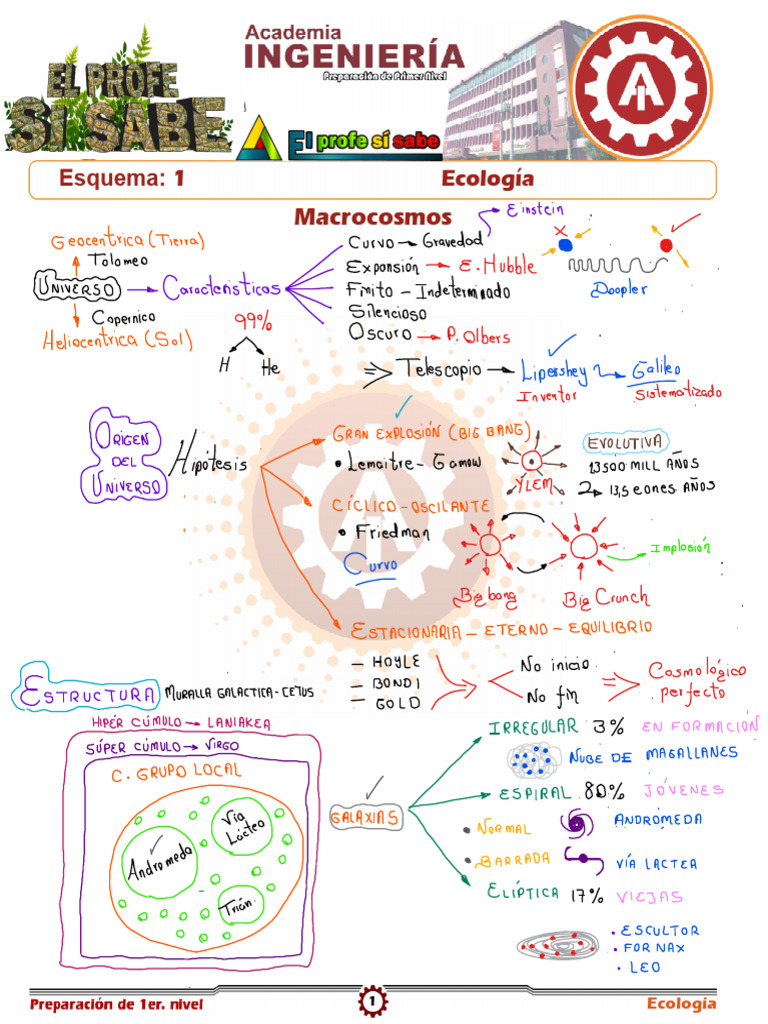 EL PROFE
SI SABE
Academia
INGENIERÍA
Preparación de Primer Nivel
El profe sí sabe
Esquema: 1
Ecología
Macrocosmos
Geocentrica (Tierra)
Tolomeo
UNIVERSO
Copernico
Heliocentrica (Sol)
Características
99%
H
He
Curvo
Gravedad
Einstein
Expansión
E. Hubble
Finito - Indeterminado
Silencioso
Oscuro
P. Olbers
Doopler
Telescopio
Lipershey
Inventor
Galileo
Sistematizado
ORIGEN
DEL
UNIVERSO
Hipótesis
GRAN EXPLOSIÓN (BIG BANG)
• Lemaitre - Gamow
YLEM
EVOLUTIVA
13500 MILL AÑOS
13,5 EONES AÑOS
CÍCLICO - OSCILANTE
• Friedman
Curvo
Big bang
Big Crunch
Implosión
ESTACIONARIA - ETERNO - EQUILIBRIO
- HOYLE
- BONDI
- GOLD
No inicio
No fin
Cosmológico
perfecto
ESTRUCTURA
MURALLA GALACTICA - CETUS
HIPER CÚMULO → LANIAKEA
SÚPER CÚMULO → VIRGO
C. GRUPO LOCAL
Andromeda
Vía
Lácteo
Trián.
GALAXIAS
IRREGULAR 3% EN FORMACIÓN
NUBE DE MAGALLANES
ESPIRAL 80% JÓVENES
• NORMAL
ANDRÓMEDA
• BARRADA
VÍA LACTEA
ELÍPTICA 17% VIEJAS
• ESCULTOR
• FORNAX
• LEO
Preparación de 1er. nivel
1
Ecología